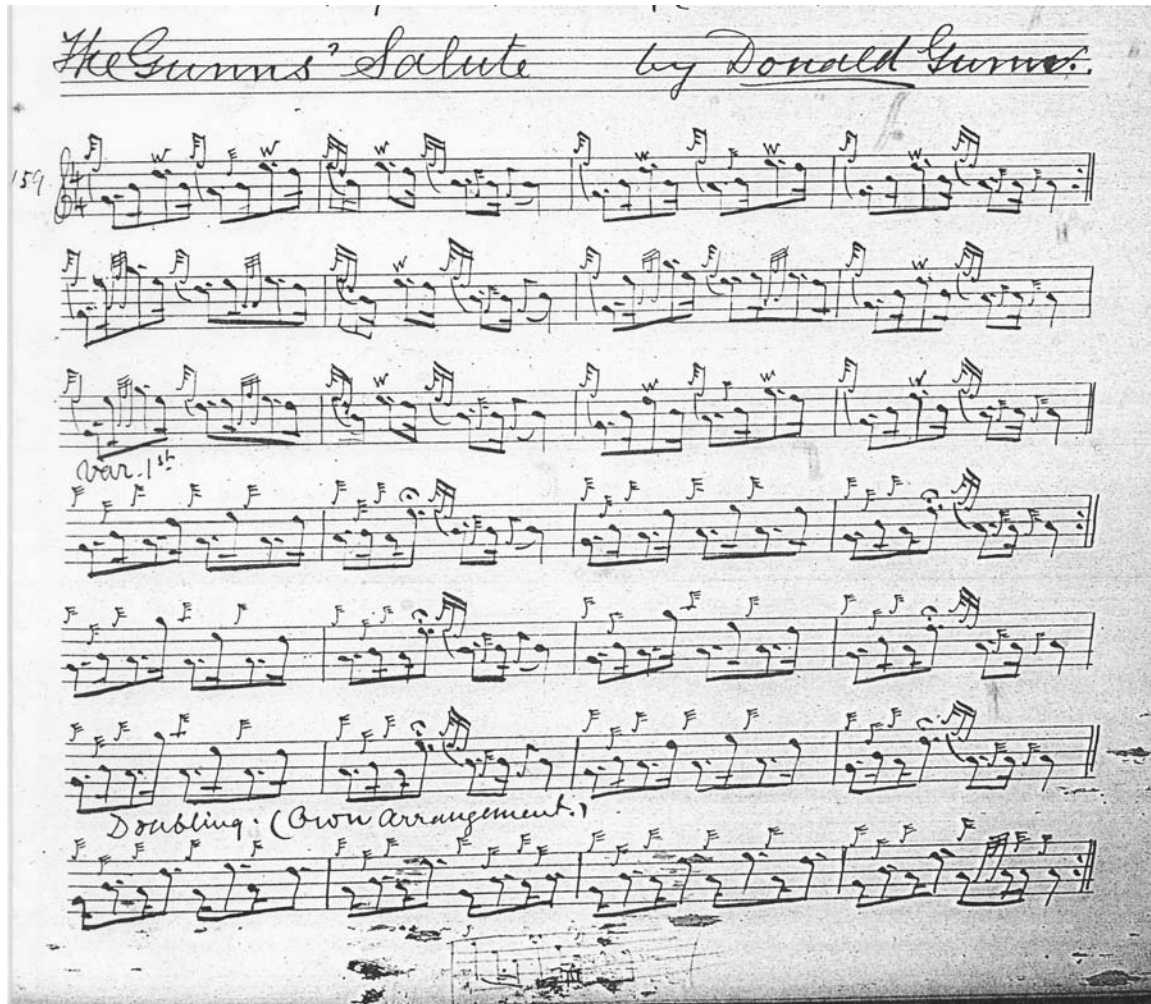 The Gunns' Salute by Donald Gunn.
159
4
4
Var. 1st
Doubling. (Own Arrangement.)